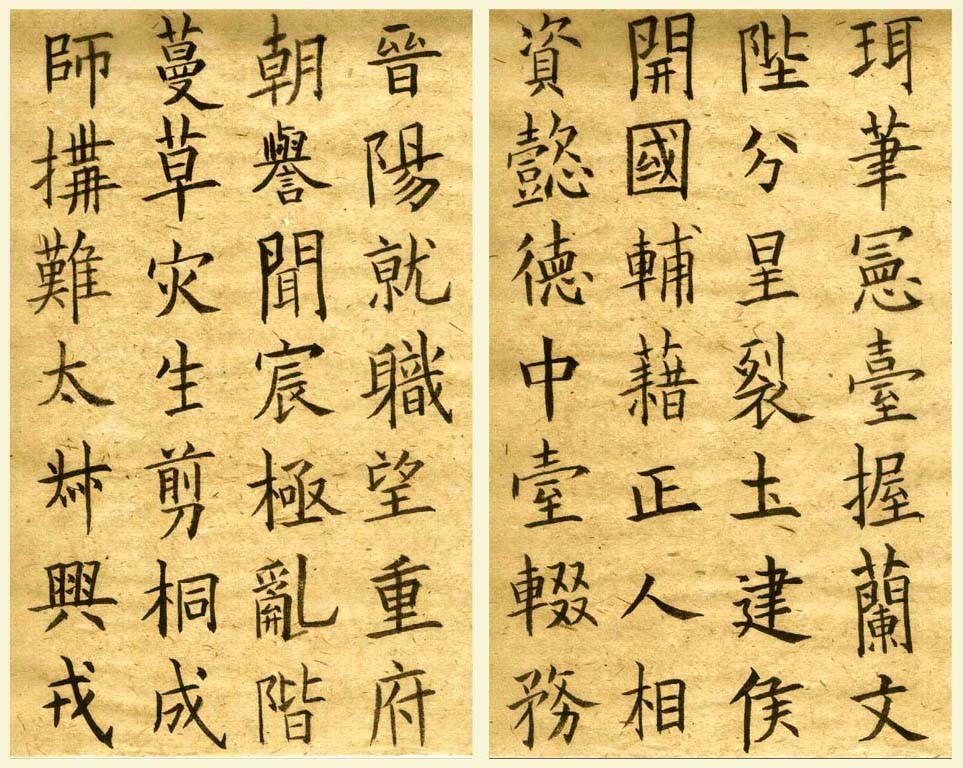 珥筆憲臺握蘭文
陛分星裂圡建侯
開國輔藉正人相
資懿德中臺輟務
晉陽就職望重府
朝譽聞宸極亂階
蔓草灾生剪桐成
師搆難太叔興戎